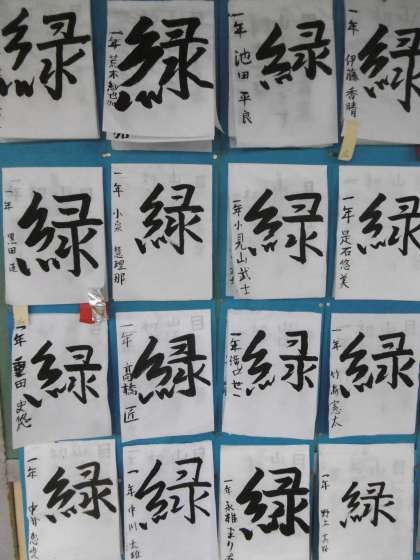 緑
緑
一年 荒木
緑
一年 池田 平良
緑
一年 伊藤 香晴
緑
一年 黒田
緑
一年 小泉 慧理那
緑
一年 小見山 武士
緑
一年 是石 悠美
緑
一年 重田 史悠
緑
一年 高橋 匠
緑
一年
緑
一年 竹島 憲太
緑
一年 中
緑
一年 中川 太雄
緑
一年 永雄 まり
緑
一年 野上